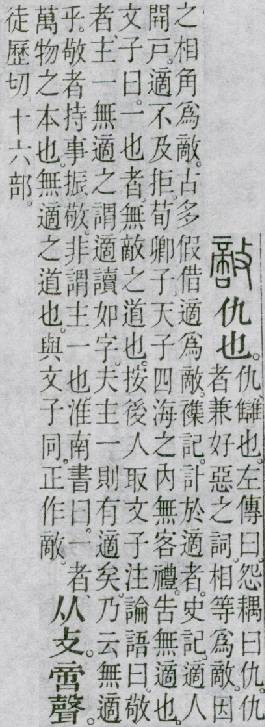 敵仇也。
仇讎也。左傳曰。怨耦曰仇。仇
者兼好惡之詞。相等爲敵。因
之相角爲敵。古多假借適爲敵。襍記。計於適者。史記。適人
開戸。適不及拒。荀卿子。天子四海之內無客禮。告無適也。
文子曰。一也者、無敵之道也。按後人取文子注論語曰。敬
者、主一無適之謂。適讀如字。夫主一則有適矣。乃云無適
乎。敬者持事振敬。非謂主一也。淮南書曰。一者、
萬物之本也。無適之道也。與文子同。正作敵。
从攴。啻聲。
徒歷切。十六部。